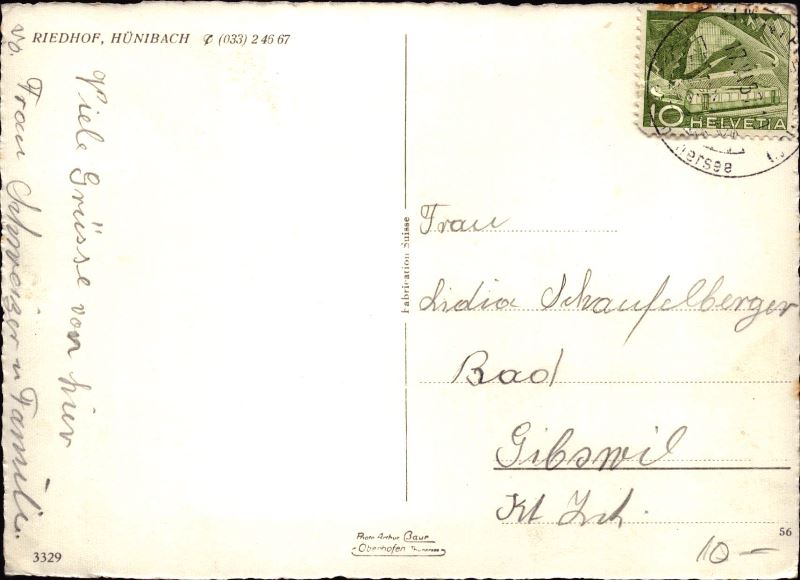 RIEDHOF, HÜNIBACH ✆ (033) 2 46 67
Viele Grüsse von hier
vo. Frau Schweizer u Familie.
Fabrication Suisse
10 HELVETIA
Frau
Lidia Schaufelberger
Bad
Gibswil
Kt Zch.
56
10 —
Photo Arthur Baur
Oberhofen
3329